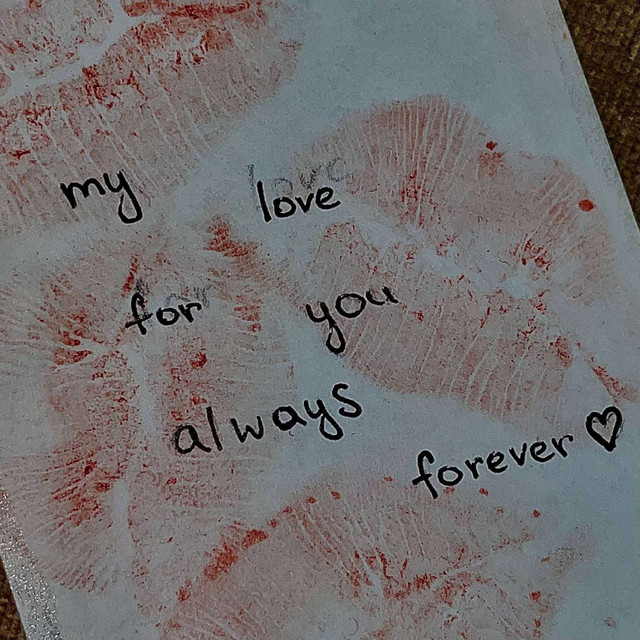 my love
for you
always
forever ♡